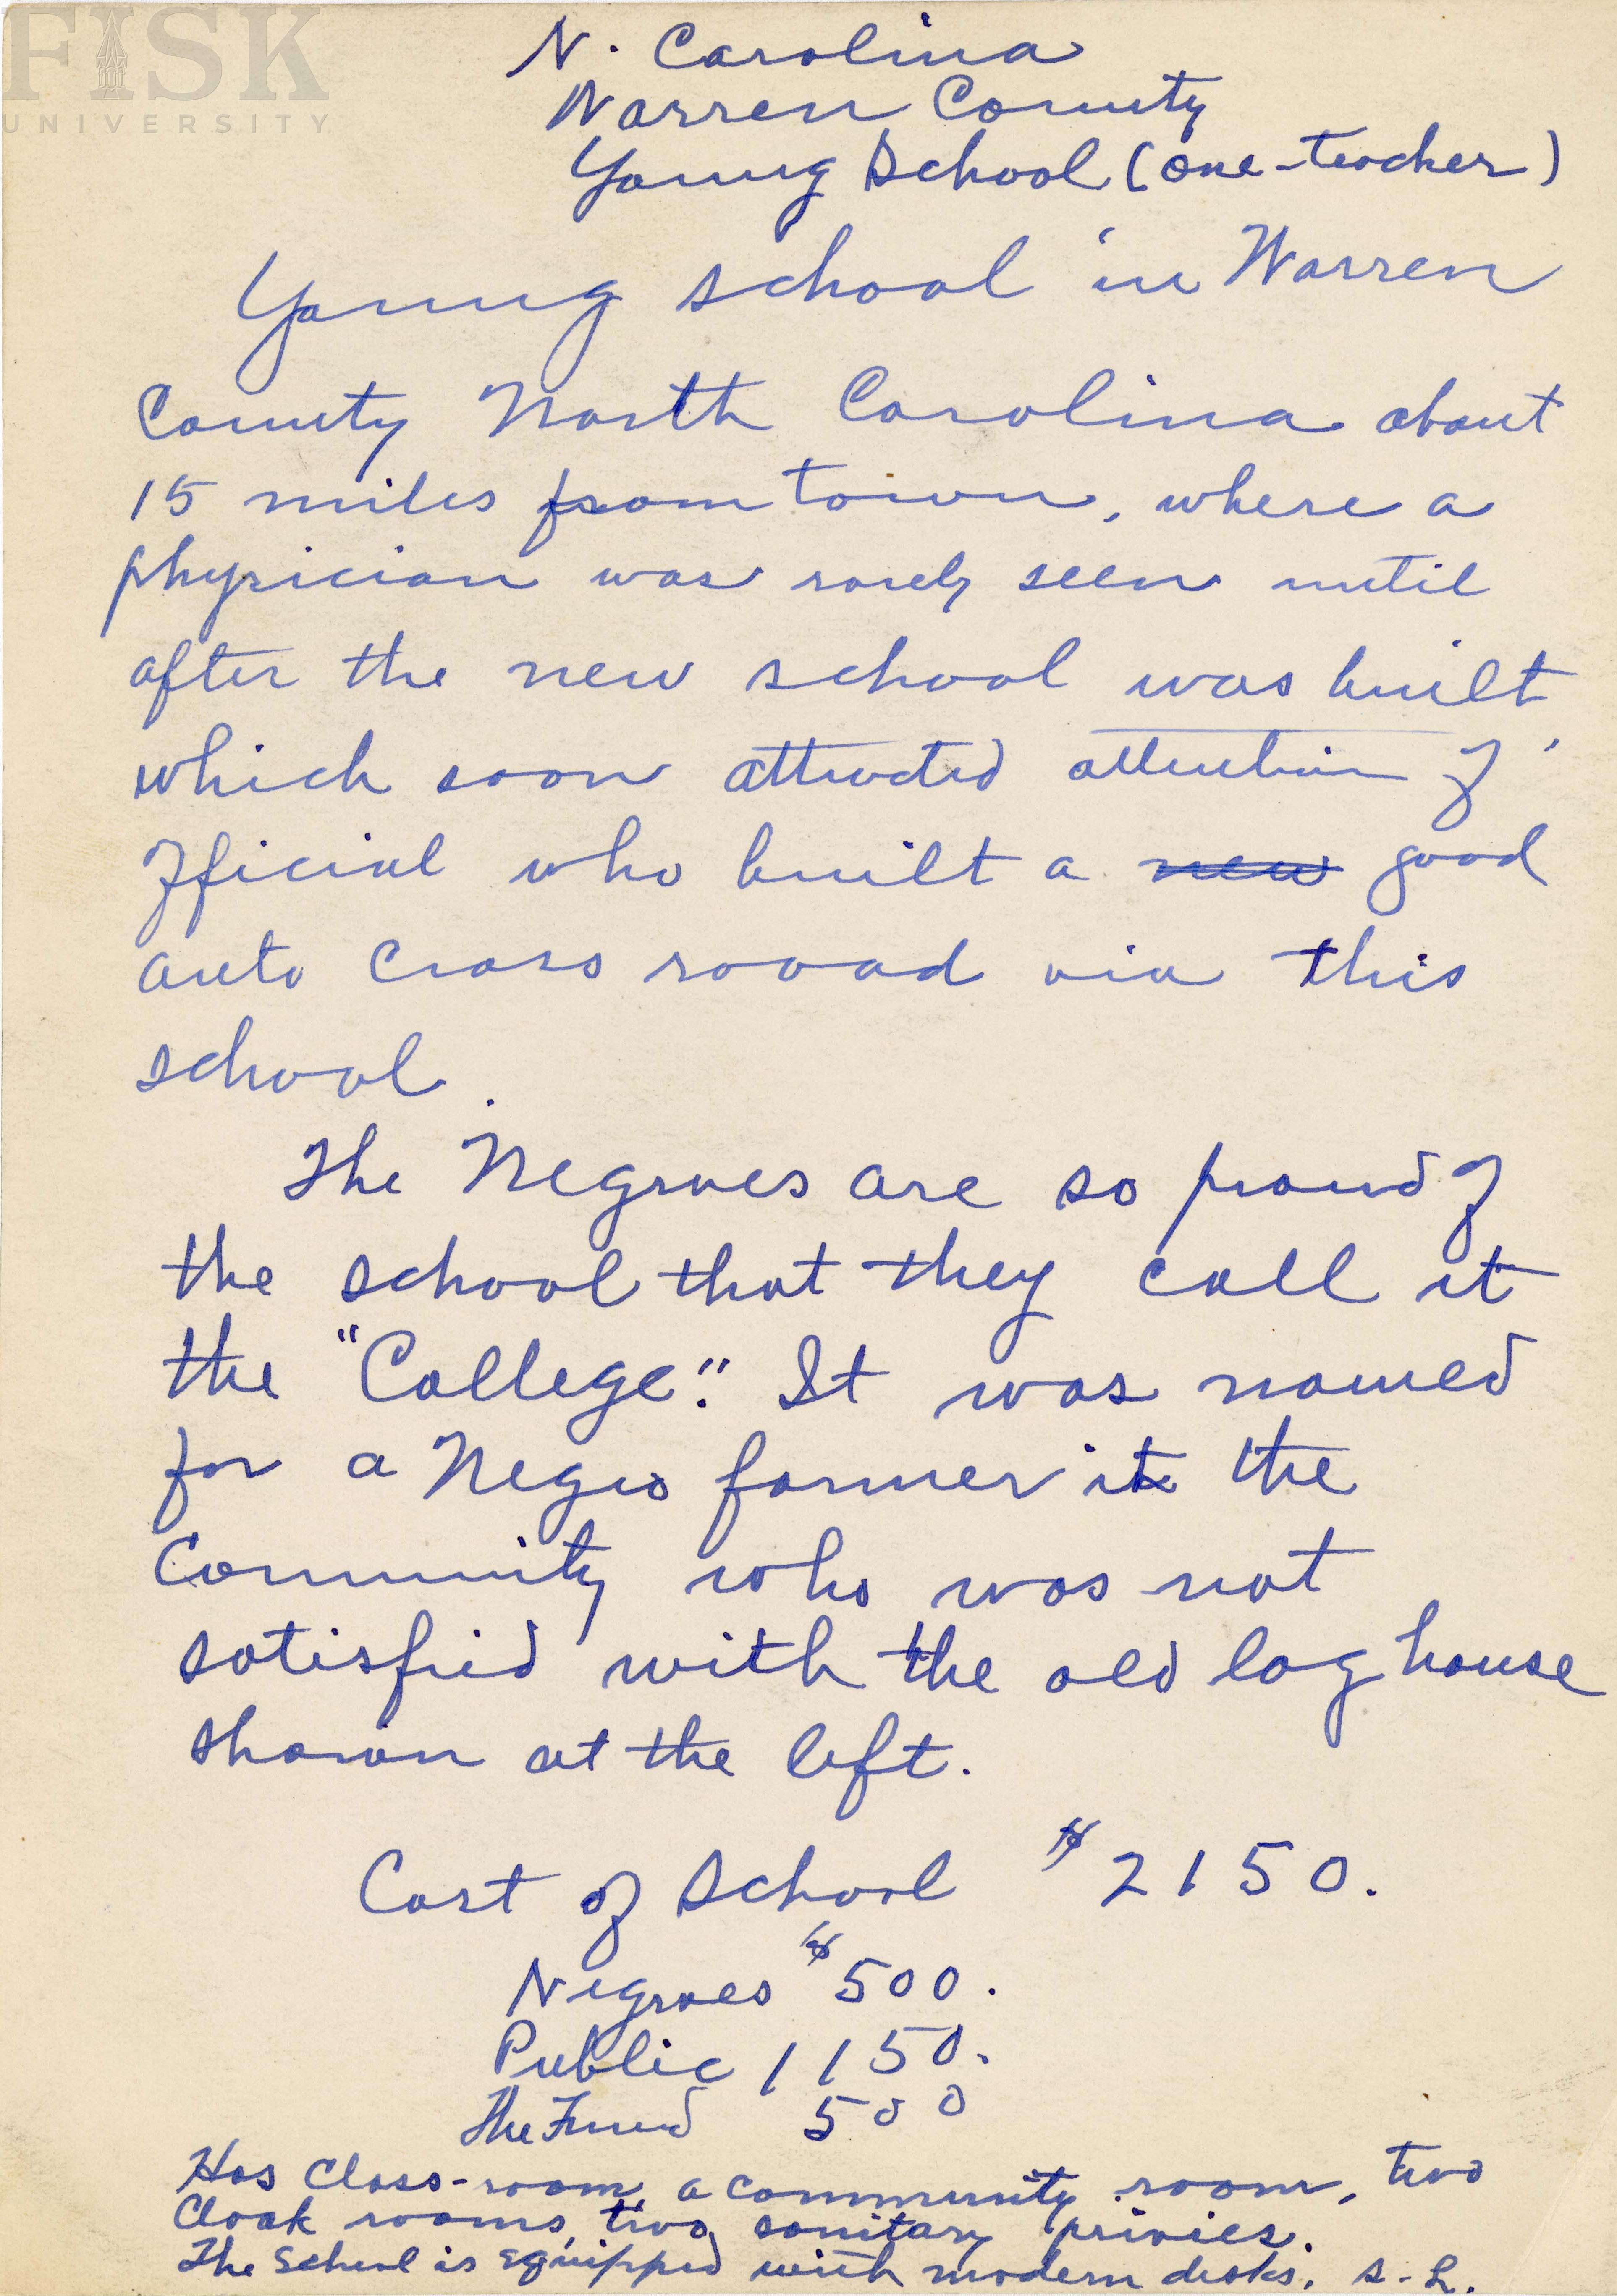 FISK
UNIVERSITY
N. Carolina
Warren County
Young School (one-teacher)
Young school in Warren
County North Carolina about
15 miles from town, where a
physician was rarely seen until
after the new school was built
which soon attracted attention of
official who built a new good
auto cross rooad via this
school.
The Negroes are so proud of
the school that they call it
the "College." It was named
for a Negro farmer in the
Community who was not
satisfied with the old log house
shown at the left.
Cost of School $2150.
Negroes $500.
Public 1150.
The Fund 500
Has Class-room, a community room, two
Cloak rooms, two sanitary privies.
The School is equipped with modern desks. S.L.